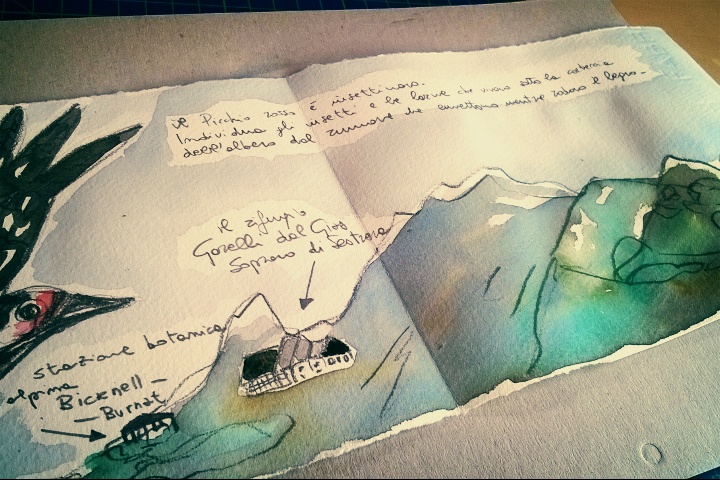 il Picchio rosso è insettivoro.
Individua gli insetti e le larve che vivono sotto la corteccia
dell'albero dal rumore che emettono mentre rodono il legno.
il rifugio
Garelli dal Gias
Soprano di Sestrera
stazione botanica
alpina
Bicknell -
- Burnat